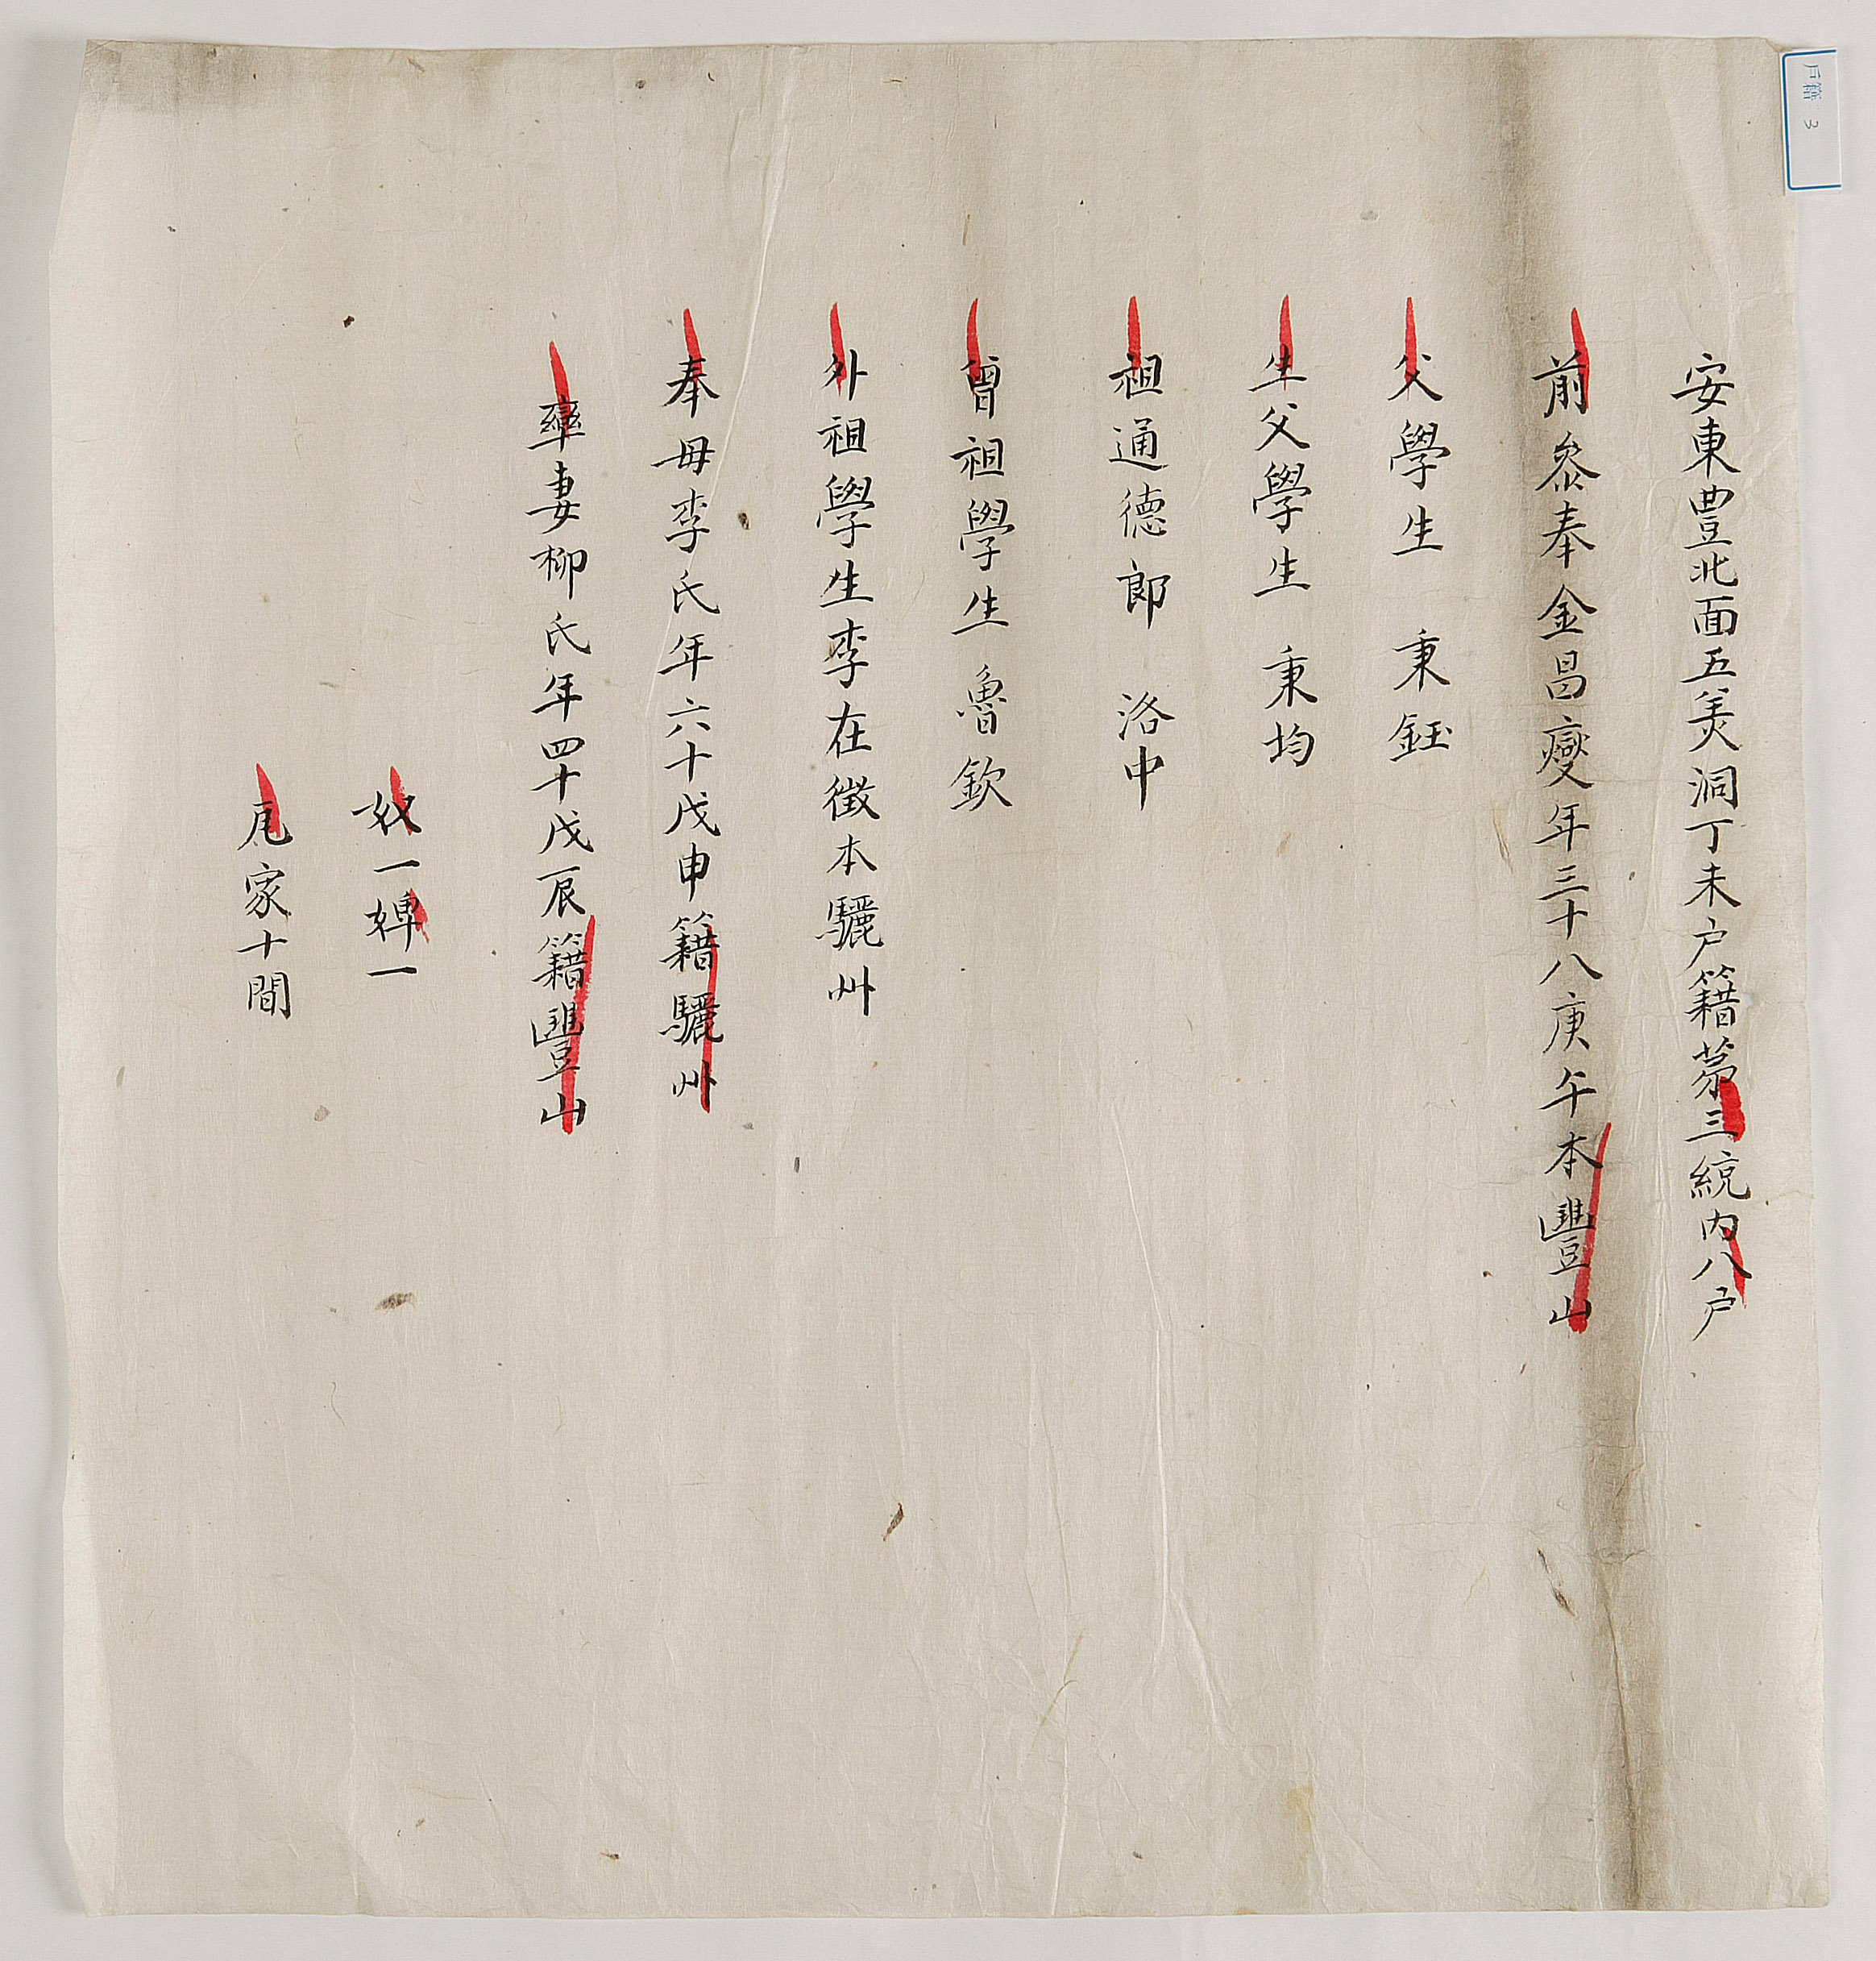 安東豊北面五美洞丁未户籍苐三統內八户
前叅奉金昌燮年三十八庚午本豐山
父學生 秉鈺
生父學生 秉均
祖通德郎 洛中
曾祖學生魯欽
外祖學生李在徵本驪州
奉母李氏年六十戊申籍驪州
率妻柳氏年四十戊辰籍豐山
奴一婢一
瓦家十間
户籍 3